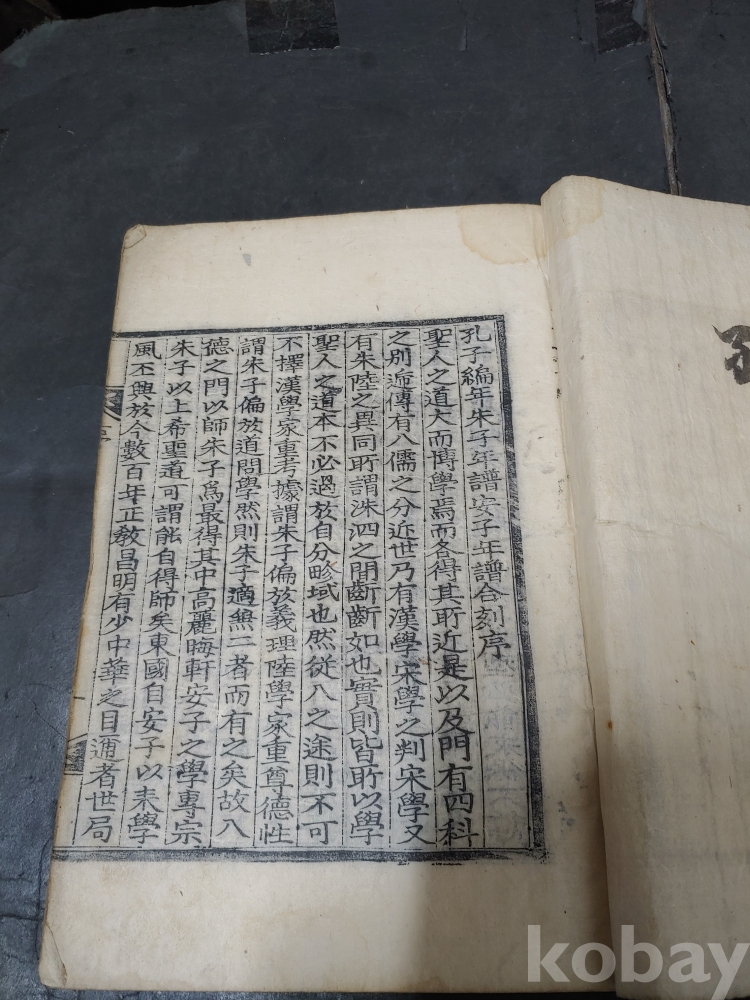 孔子編年朱子年譜安子年譜合刻序
聖人之道大而博學焉而各得其所近是以及門有四科
之別遞傳有八儒之分近世乃有漢學宋學之判宋學又
有朱陸之異同所謂洙泗之間齗齗如也實則皆所以學
聖人之道本不必過於自分畛域也然從入之途則不可
不擇漢學家重考據謂朱子偏於義理陸學家重尊德性
謂朱子偏於道問學然則朱子適無二者而有之矣故入
德之門以師朱子爲最得其中高麗晦軒安子之學專宗
朱子以上希聖道可謂能自得師矣東國自安子以來學
風丕興於今數百年正教昌明有少中華之目邇者世局
序
kobay